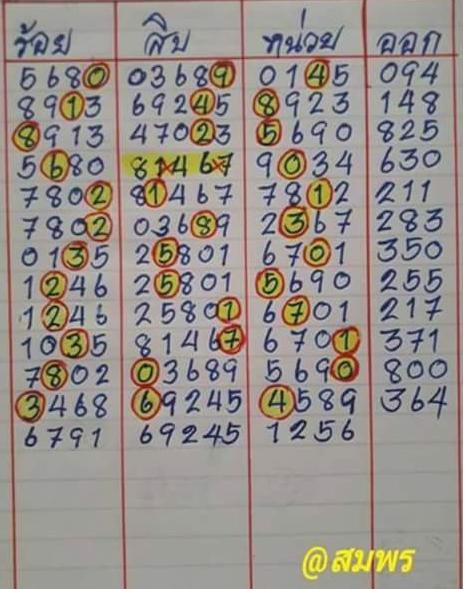 ร้อย สิบ หน่วย ออก
5680 03689 0145 094
8913 69245 8923 148
8913 47023 5690 825
5680 81467 9034 630
7802 81467 7812 211
7802 03689 2367 283
0135 25801 6701 350
1246 25801 5690 255
1246 25801 6701 217
1035 81467 6701 371
7802 03689 5690 800
3468 69245 4589 364
6791 69245 1256
@สมพร